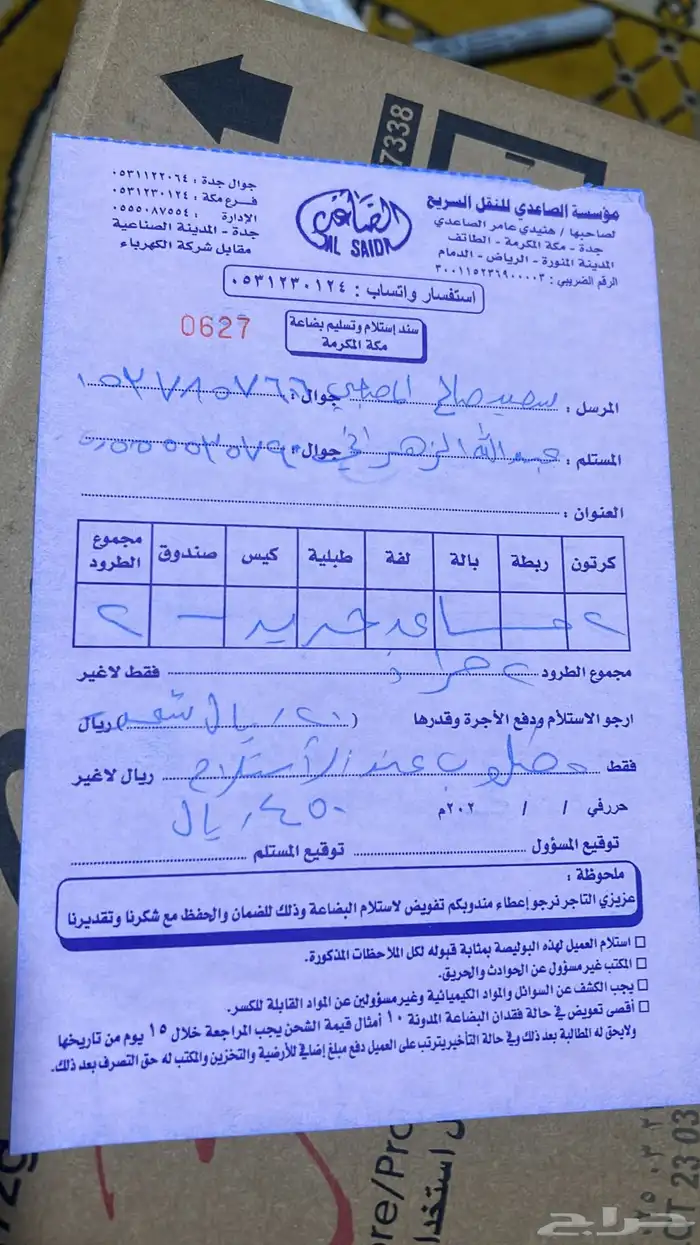 مؤسسة الصاعدي للنقل السريع
لصاحبها / هنيدي عامر الصاعدي
جدة - مكة المكرمة - الطائف
المدينة المنورة - الرياض - الدمام
الرقم الضريبي : ٣٠٠١١٥٢٣٦٩٠٠٠٠٣
الصاعدي
AL SAIDI
جوال جدة : ٠٥٣١١٢٢٠٦٤
فرع مكة : ٠٥٣١٢٣٠١٢٤
الإدارة : ٠٥٥٥٠٨٧٥٥٤
جدة - المدينة الصناعية
مقابل شركة الكهرباء
7338
استفسار واتساب : ٠٥٣١٢٣٠١٢٤
سند إستلام وتسليم بضاعة
مكة المكرمة
0627
المرسل : سعيد صالح جوال : ٠٥٣٧٨٥٧٦٦
المستلم : عبدالله الزهراني جوال :
العنوان :
كرتون ربطة بالة لفة طبلية كيس صندوق مجموع الطرود
٢ ٢
مجموع الطرود ٢ فقط لاغير
ارجو الاستلام ودفع الأجرة وقدرها ( ) ريال
فقط مطلوب عند الأستلام ريال لاغير
حرر في / / ٢٠٢م ٤٥٠ ريال
توقيع المسؤول توقيع المستلم
ملحوظة :
عزيزي التاجر نرجو إعطاء مندوبكم تفويض لاستلام البضاعة وذلك للضمان والحفظ مع شكرنا وتقديرنا
استلام العميل لهذه البوليصة بمثابة قبوله لكل الملاحظات المذكورة.
المكتب غير مسؤول عن الحوادث والحريق.
يجب الكشف عن السوائل والمواد الكيميائية وغير مسؤولين عن المواد القابلة للكسر.
أقصى تعويض في حالة فقدان البضاعة المدونة ١٠ أمثال قيمة الشحن يجب المراجعة خلال ١٥ يوم من تاريخها
ولايحق له المطالبة بعد ذلك وفي حالة التأخير يترتب على العميل دفع مبلغ إضافي للأرضية والتخزين والمكتب له حق التصرف بعد ذلك.
حراج